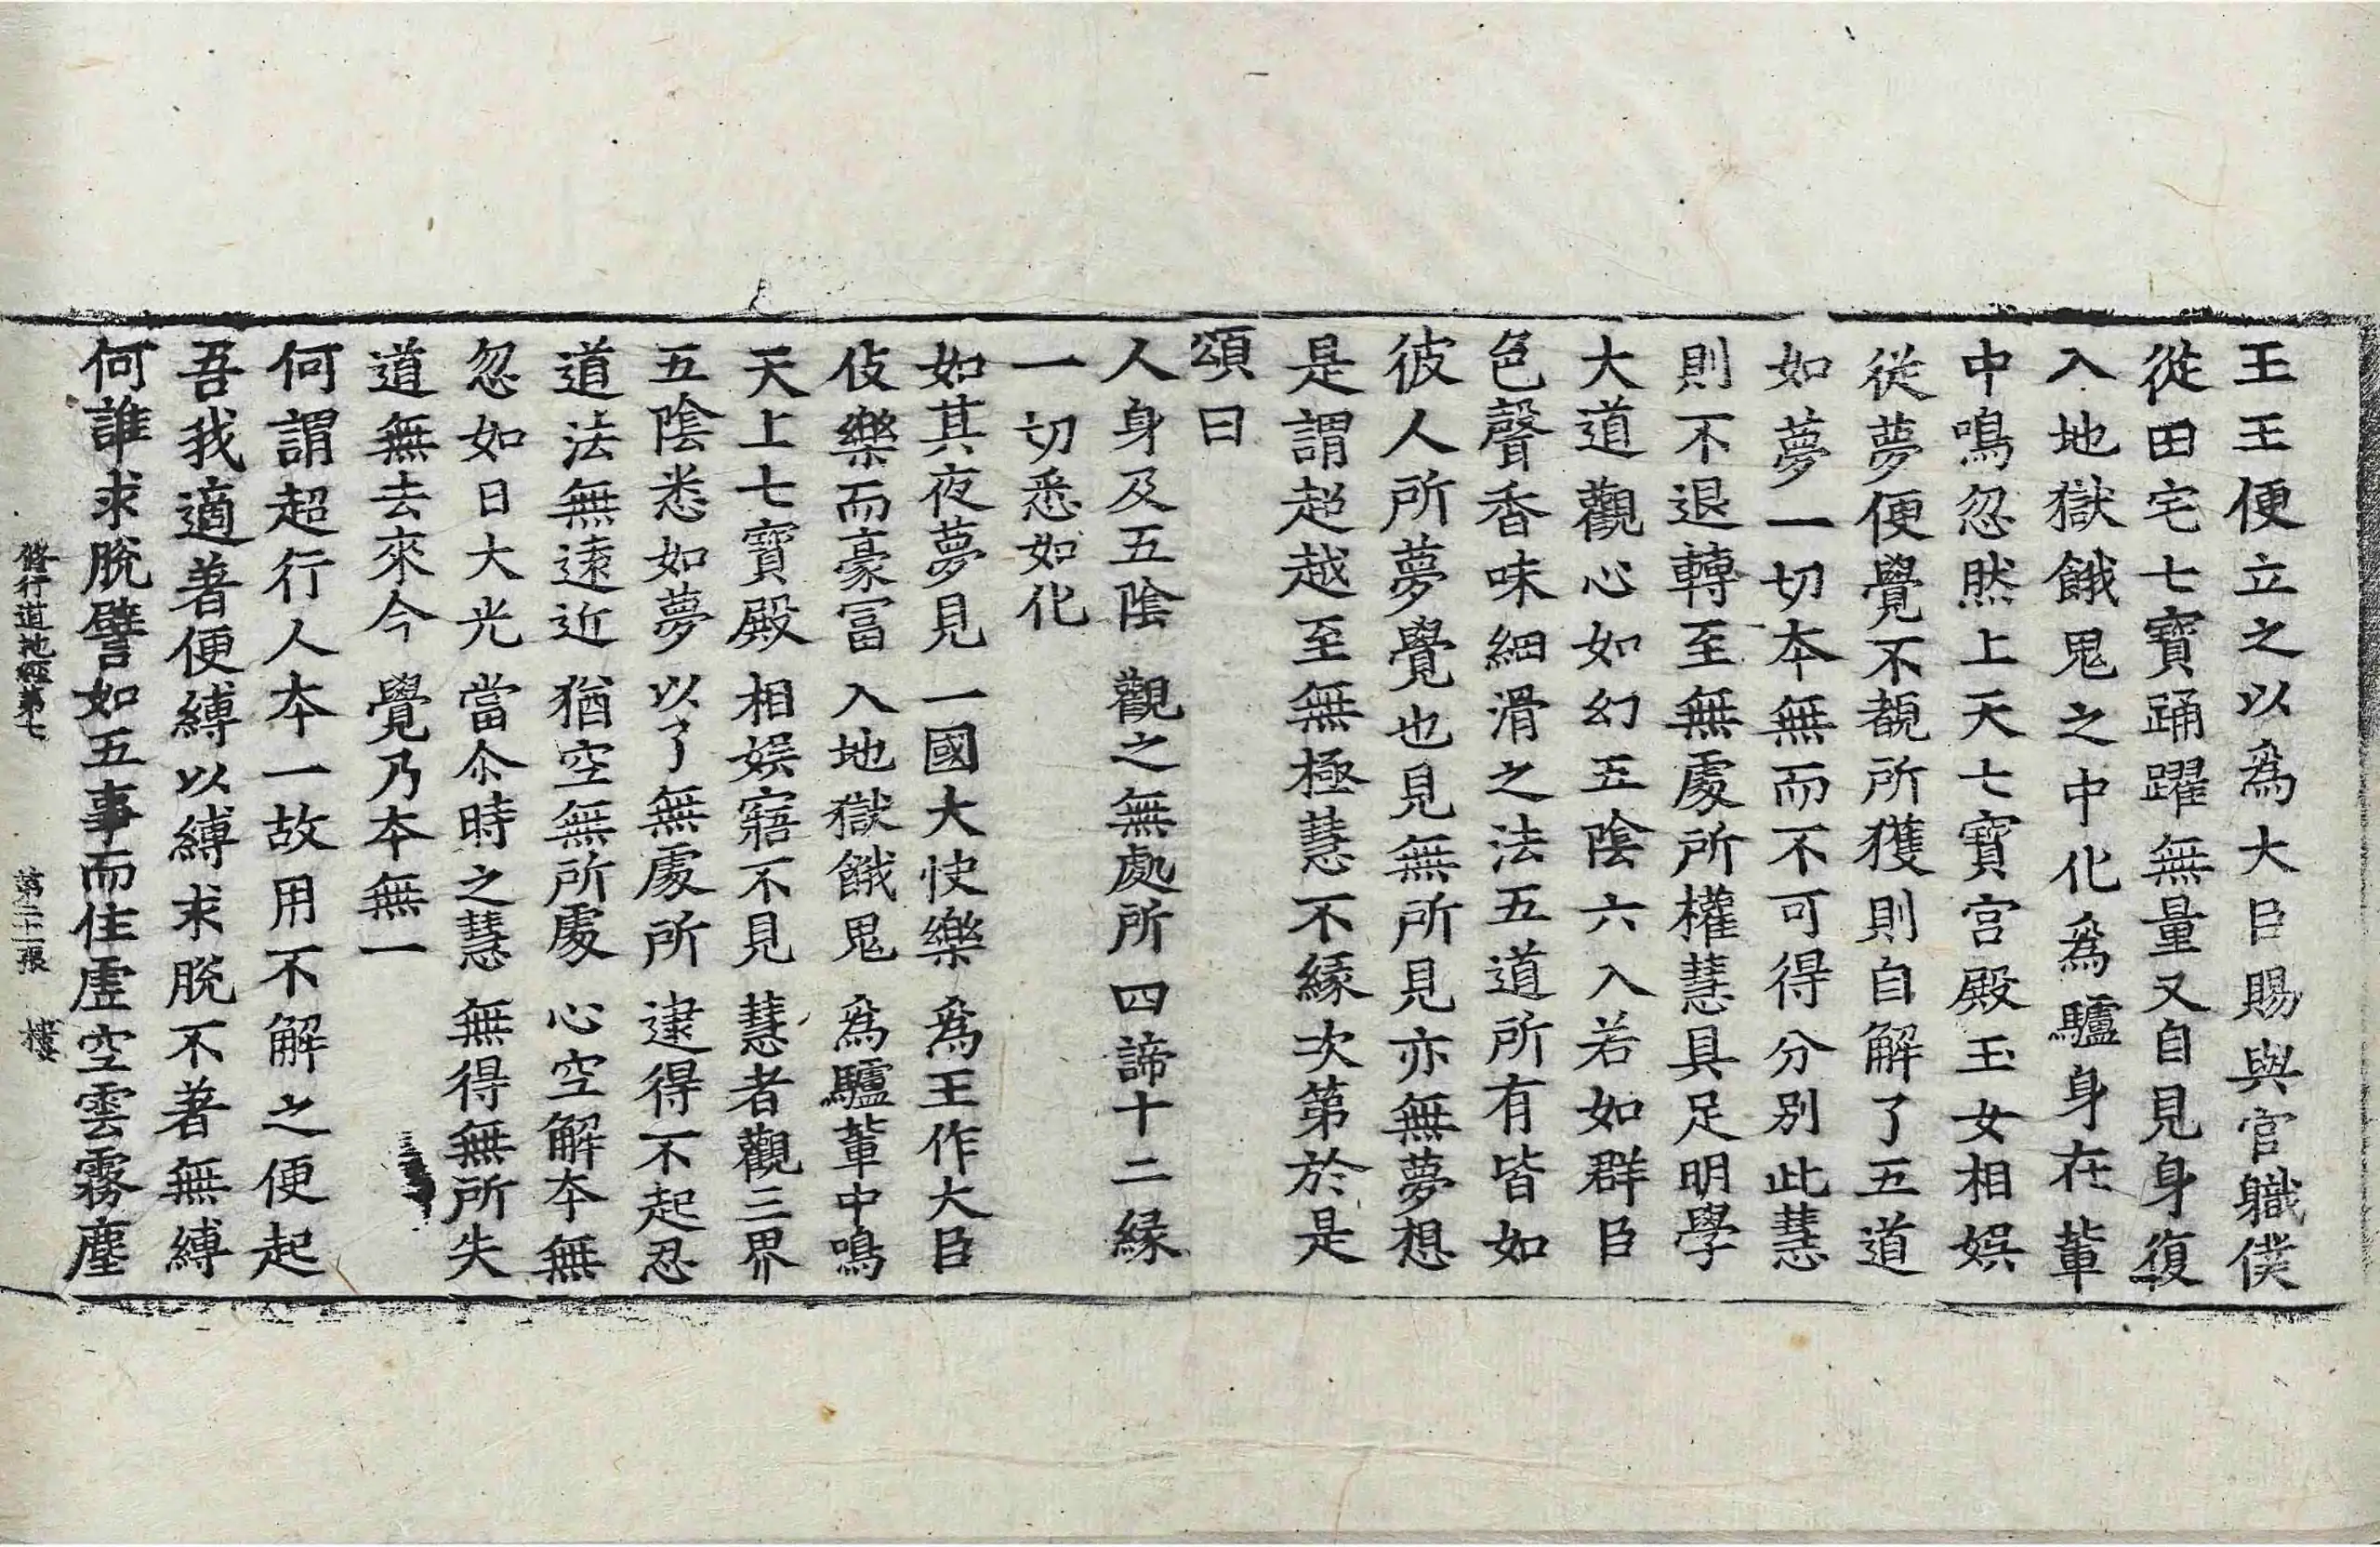 王王便立之以為大臣賜與官職僕
從田宅七寶踊躍無量又自見身復
入地獄餓鬼之中化為驢身在輩
中鳴忽然上天七寶宮殿玉女相娛
從夢便覺不覩所獲則自解了五道
如夢一切本無而不可得分別此慧
則不退轉至無處所權慧具足明學
大道觀心如幻五陰六入若如群臣
色聲香味細滑之法五道所有皆如
彼人所夢覺也見無所見亦無夢想
是謂超越至無極慧不緣次第於是
頌曰
人身及五陰　觀之無處所　四諦十二緣
一切悉如化
如其夜夢見　一國大快樂　為王作大臣
伎樂而豪冨　入地獄餓鬼　為驢輩中鳴
天上七寶殿　相娛寤不見　慧者觀三界
五陰悉如夢　以了無處所　逮得不起忍
道法無遠近　猶空無所處　心空解本無
忽如日大光　當尒時之慧　無得無所失
道無去來今　覺乃本無一
何謂超行人本一故用不解之便起
吾我適著便縛以縛求脫不著無縛
何誰求脫譬如五事而住虛空雲霧塵
修行道地經第七　第二十一張　樓